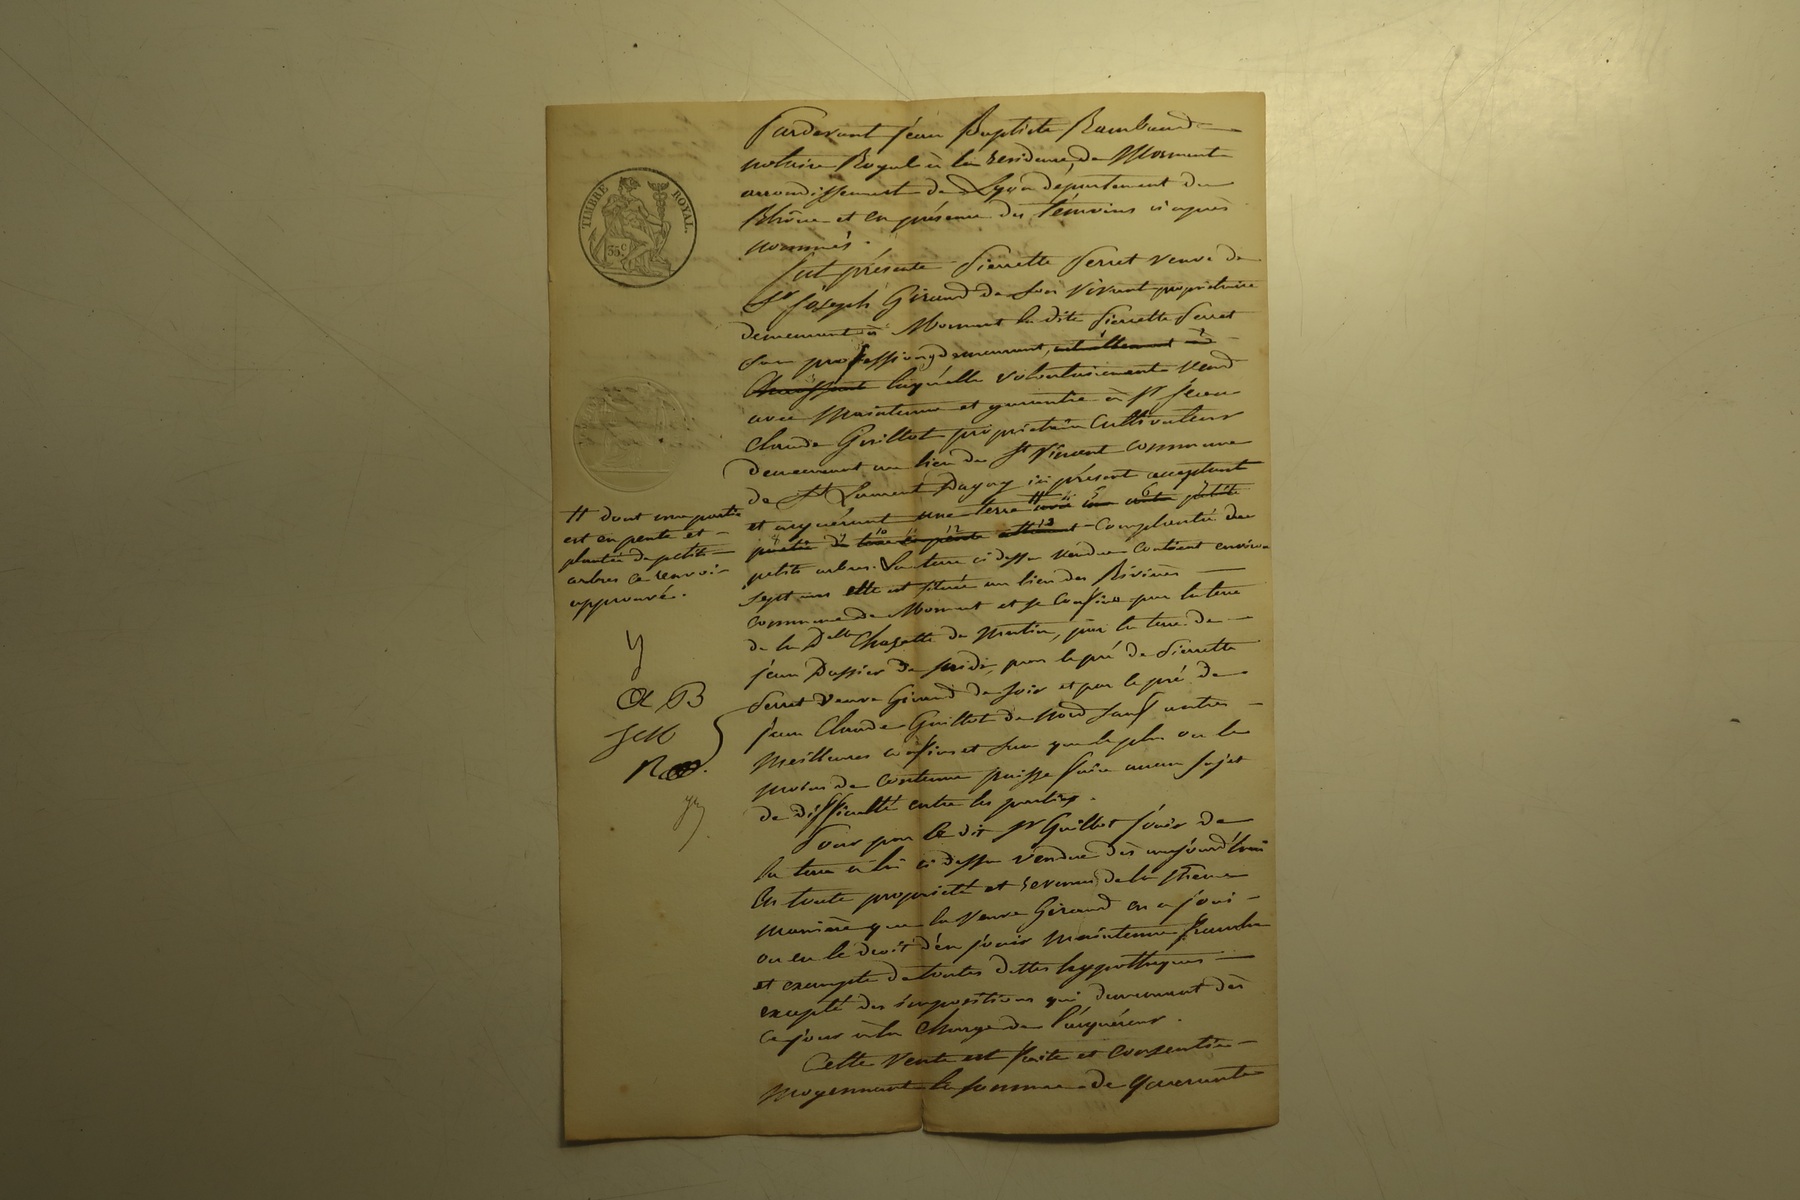 TIMBRE ROYAL.
35.c
Pardevant Jean Baptiste Rambaud
notaire Royal à la residence de Mornant
arrondissement de Lyon département du
Rhône et en présence des témoins ci après
nommés.
Fut présente Pierrette Perret veuve de
Sr Joseph Giraud de son vivant propriétaire
demeurant à Mornant la dite Pierrette Perret
san profession, y demeurant,
laquelle volontairement vend
avec Maintenue et garantie à Sr Jean
Claude Guillot propriétaire Cultivateur
demeurant au lieu de St Vincent commune
de St Laurent Dagny ici présent acceptant
et acquérant une terre # une autre petite
partie de complantée de
petits arbres. La terre ci dessu vendue contient environ
sept ares elle est située au lieu des Rivières
commune de Mornant et se confine par la terre
de la Dlle Chazette de Matin, par la terre de
jean Dassier de midi, par le pré de Pierrette
Perret veuve Giraud de soir et par le pré de
jean Claude Guillot de Nord sauf autres
Meilleures confins et san que le plus ou le
moins de contenue puisse faire aucun sujet
de difficulté entre les parties.
Pour par le dit Sr Guillot jouir de
la terre à lui ci dessu vendue dès aujourd'hui
en toute propriété et revenu, de la même
manière que la veuve Giraud en a joui
ou eu le droit d'en jouir Maintenue franche
et exempte de toutes dettes hypothèques
excepté des impositions qui demeurent dès
ce jour à la charge de l'acquéreur.
Cette vente est faite et consentie
moyennant la somme de quarante
# dont une partie
est en pente et
plantée de petits
arbres ce renvoi
approuvé.